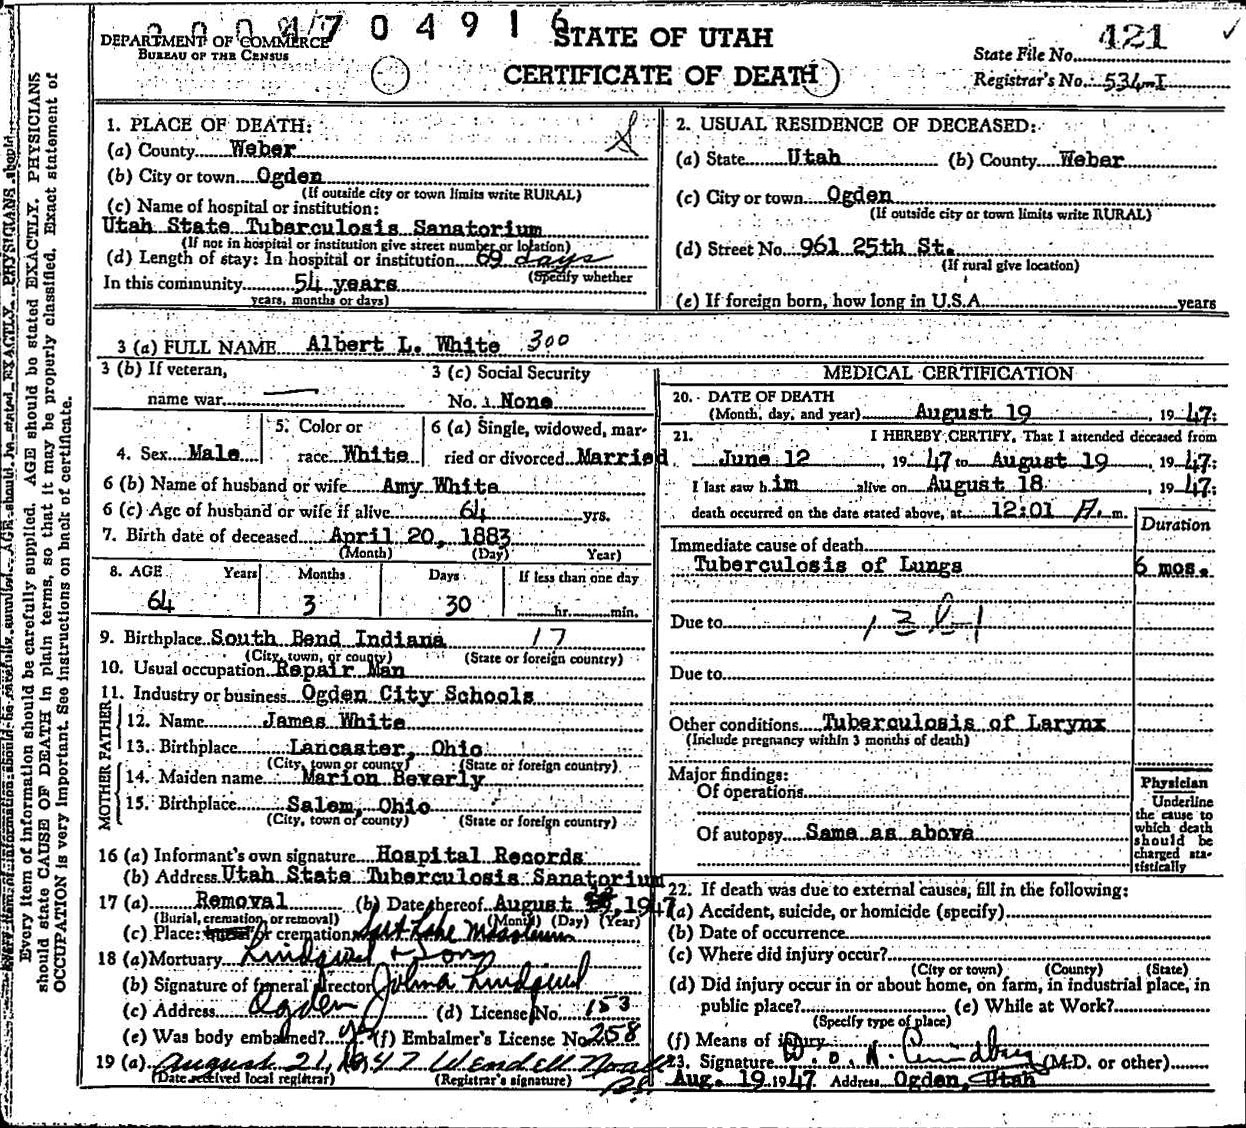 0 0 0 4 7 0 4 9 1 6
DEPARTMENT OF COMMERCE
BUREAU OF THE CENSUS
STATE OF UTAH
CERTIFICATE OF DEATH
421
State File No.
Registrar's No. 534-I
Every item of information should be carefully supplied. AGE should be stated EXACTLY. PHYSICIANS
should state CAUSE OF DEATH in plain terms, so that it may be properly classified. Exact statement of
OCCUPATION is very important. See instructions on back of certificate.
1. PLACE OF DEATH:
(a) County Weber
(b) City or town Ogden
(If outside city or town limits write RURAL)
(c) Name of hospital or institution:
Utah State Tuberculosis Sanatorium
(If not in hospital or institution give street number or location)
(d) Length of stay: In hospital or institution 69 days
(Specify whether
In this community 54 years
years, months or days)
2. USUAL RESIDENCE OF DECEASED:
(a) State Utah (b) County Weber
(c) City or town Ogden
(If outside city or town limits write RURAL)
(d) Street No. 961 25th St.
(If rural give location)
(e) If foreign born, how long in U.S.A. years
3 (a) FULL NAME Albert L. White 300
3 (b) If veteran,
name war
3 (c) Social Security
No. None
4. Sex Male
5. Color or
race White
6 (a) Single, widowed, mar-
ried or divorced Married
6 (b) Name of husband or wife Amy White
6 (c) Age of husband or wife if alive 64 yrs.
7. Birth date of deceased April 20, 1883
(Month) (Day) Year)
8. AGE Years Months Days If less than one day
64 3 30 hr. min.
9. Birthplace South Bend Indiana 17
(City, town, or county) (State or foreign country)
10. Usual occupation Repair Man
11. Industry or business Ogden City Schools
FATHER
12. Name James White
13. Birthplace Lancaster, Ohio
(City, town or county) (State or foreign country)
MOTHER
14. Maiden name Marion Beverly
15. Birthplace Salem, Ohio
(City, town or county) (State or foreign country)
16 (a) Informant's own signature Hospital Records
(b) Address Utah State Tuberculosis Sanatorium
17 (a) Removal (b) Date thereof August 1947
(Burial, cremation, or removal) (Month) (Day) (Year)
(c) Place: burial or cremation Salt Lake Mausoleum
18 (a) Mortuary Lindquist & Sons
(b) Signature of funeral director John A Lindquist
(c) Address Ogden (d) License No. 153
(e) Was body embalmed? yes (f) Embalmer's License No. 258
19 (a) August 21, 1947 Wendell
(Date received local registrar) (Registrar's signature)
MEDICAL CERTIFICATION
20. DATE OF DEATH
(Month, day, and year) August 19, 1947:
21. I HEREBY CERTIFY, That I attended deceased from
June 12, 1947 to August 19, 1947:
I last saw him alive on August 18, 1947:
death occurred on the date stated above, at 12:01 A. m.
Duration
Immediate cause of death
Tuberculosis of Lungs 6 mos.
Due to 13b-1
Due to
Other conditions Tuberculosis of Larynx
(Include pregnancy within 3 months of death)
Major findings:
Of operations
Of autopsy Same as above
Physician
Underline
the cause to
which death
should be
charged sta-
tistically
22. If death was due to external causes, fill in the following:
(a) Accident, suicide, or homicide (specify)
(b) Date of occurrence
(c) Where did injury occur?
(City or town) (County) (State)
(d) Did injury occur in or about home, on farm, in industrial place, in
public place? (e) While at Work?
(Specify type of place)
(f) Means of injury
23. Signature (M.D. or other)
Aug. 19 1947 Address Ogden, Utah